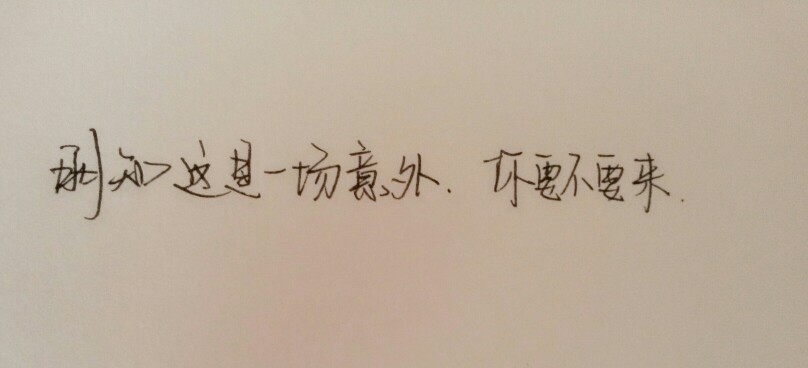 明知这是一场意外. 你要不要来.